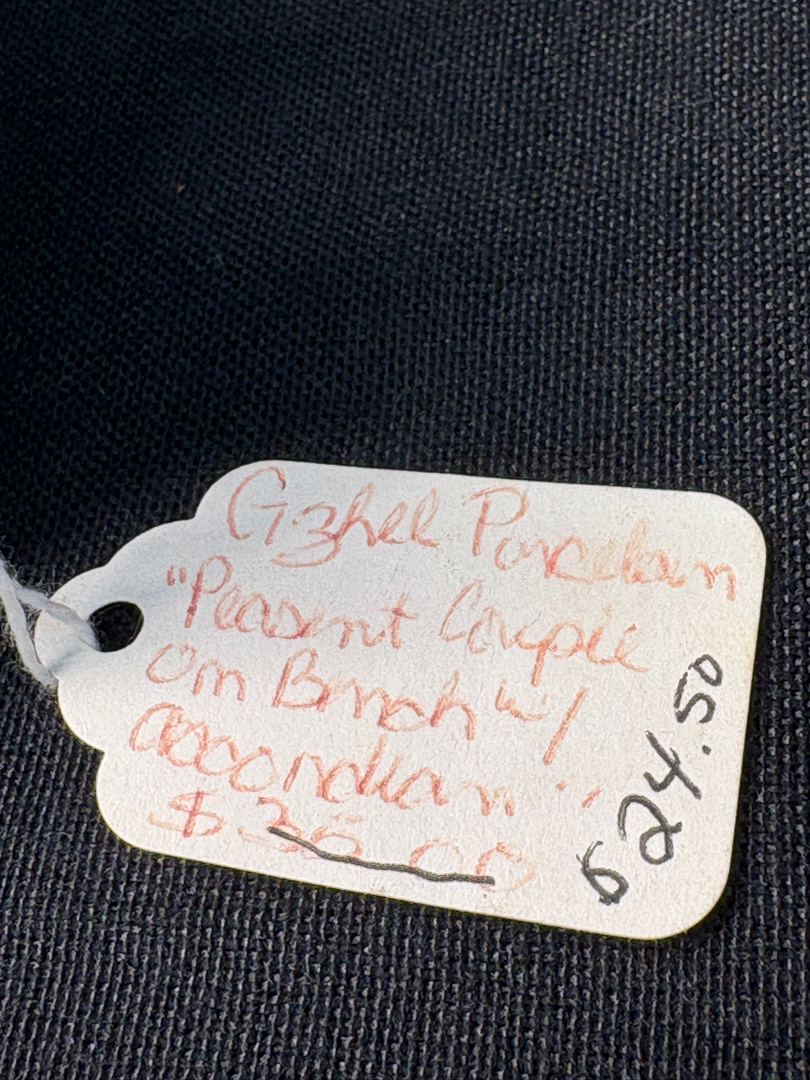 Gzhel Porcelain
"Peasent Couple
on Bench w/
accordian"
$ 35.00
$24.50